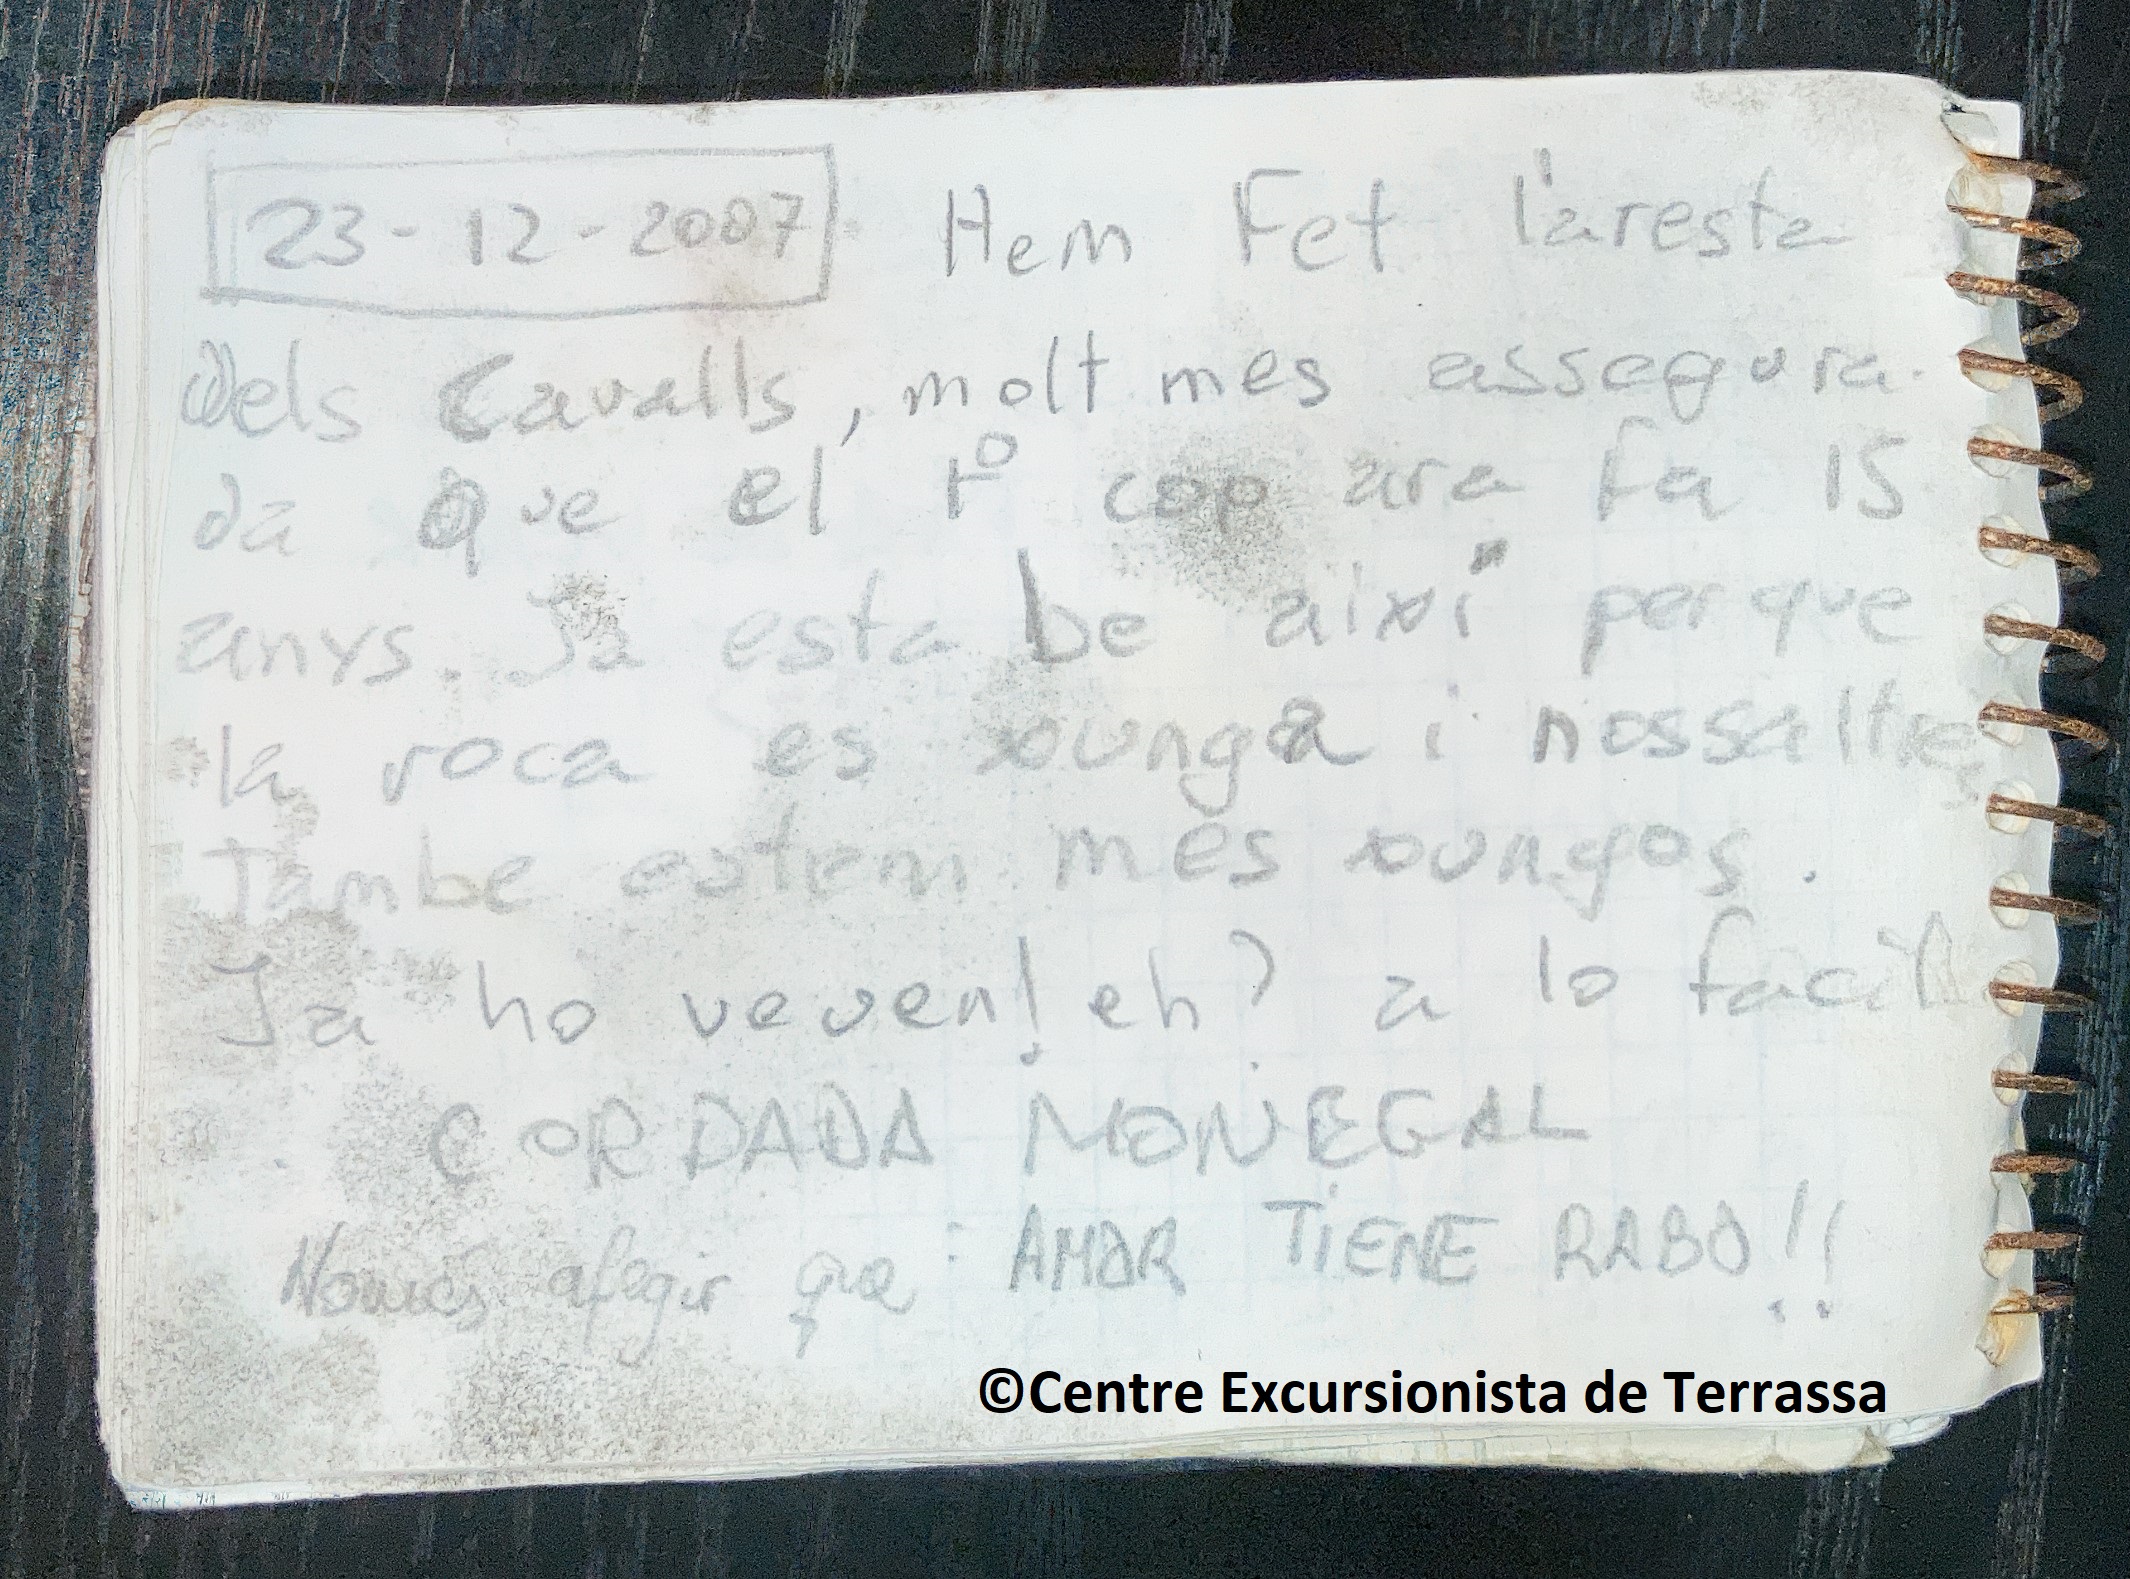 23-12-2007 Hem Fet l'aresta
dels Cavalls, molt mes assegura-
da que el 1º cop ara fa 15
anys. Ja esta be així perque
la roca es xunga i nossaltres
Tambe estem mes xungos.
Ja ho veuen! eh? a lo facil
CORDADA MONEGAL
Només afegir que: AMOR TIENE RABO!!
©Centre Excursionista de Terrassa